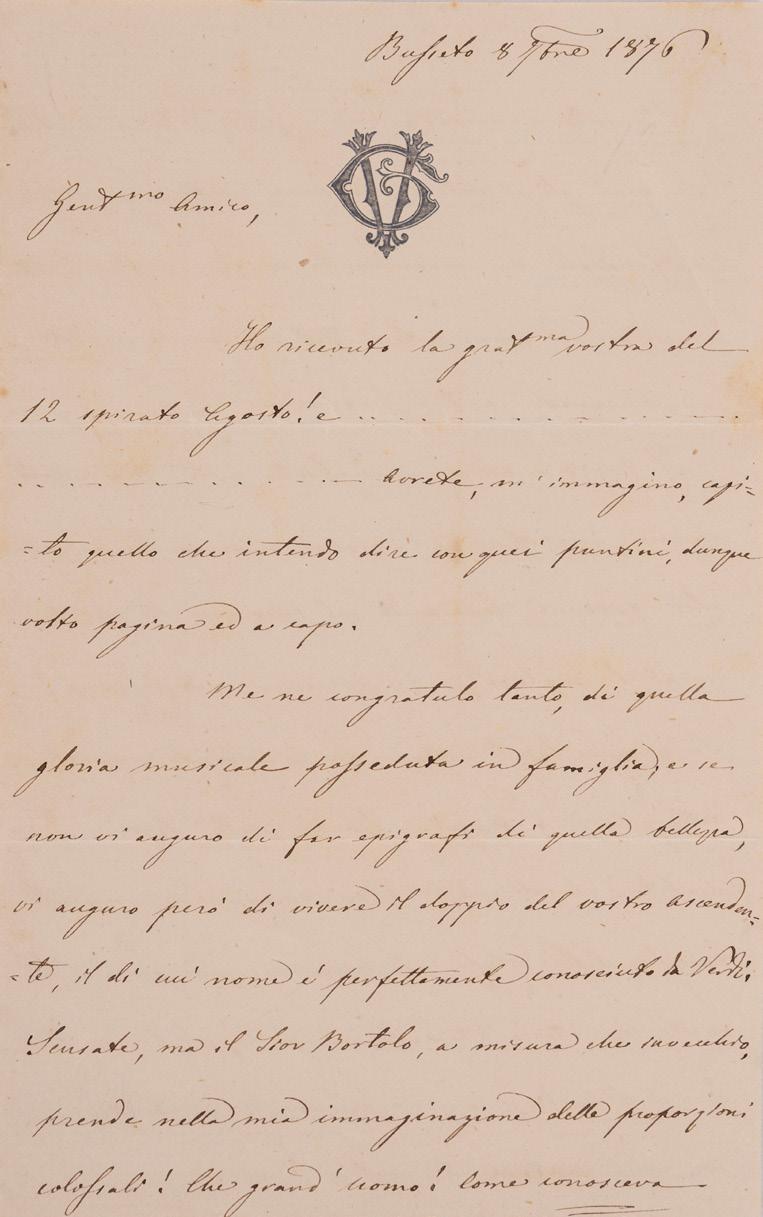 Busseto 8 7bre 1876
GV
Gentmo Amico,
Ho ricevuto la gratma vostra del
12 spirato Agosto! e .. . . . . . . . . . . . . .
. . . . . . . . . . . . . Avrete, m'immagino, capi=
=to quello che intendo dire con quei puntini, dunque
volto pagina ed a capo.
Me ne congratulo tanto, di quella
gloria musicale posseduta in famiglia, e se
non vi auguro di far epigrafi di quella bellezza,
vi auguro peró di vivere il doppio del vostro ascenden=
=te, il di cui nome é perfettamente conosciuto da Verdi.
Scusate, ma il Sior Bortolo, a misura che invecchio,
prende nella mia immaginazione delle proporzioni
colossali! Che grand'uomo! Come conosceva